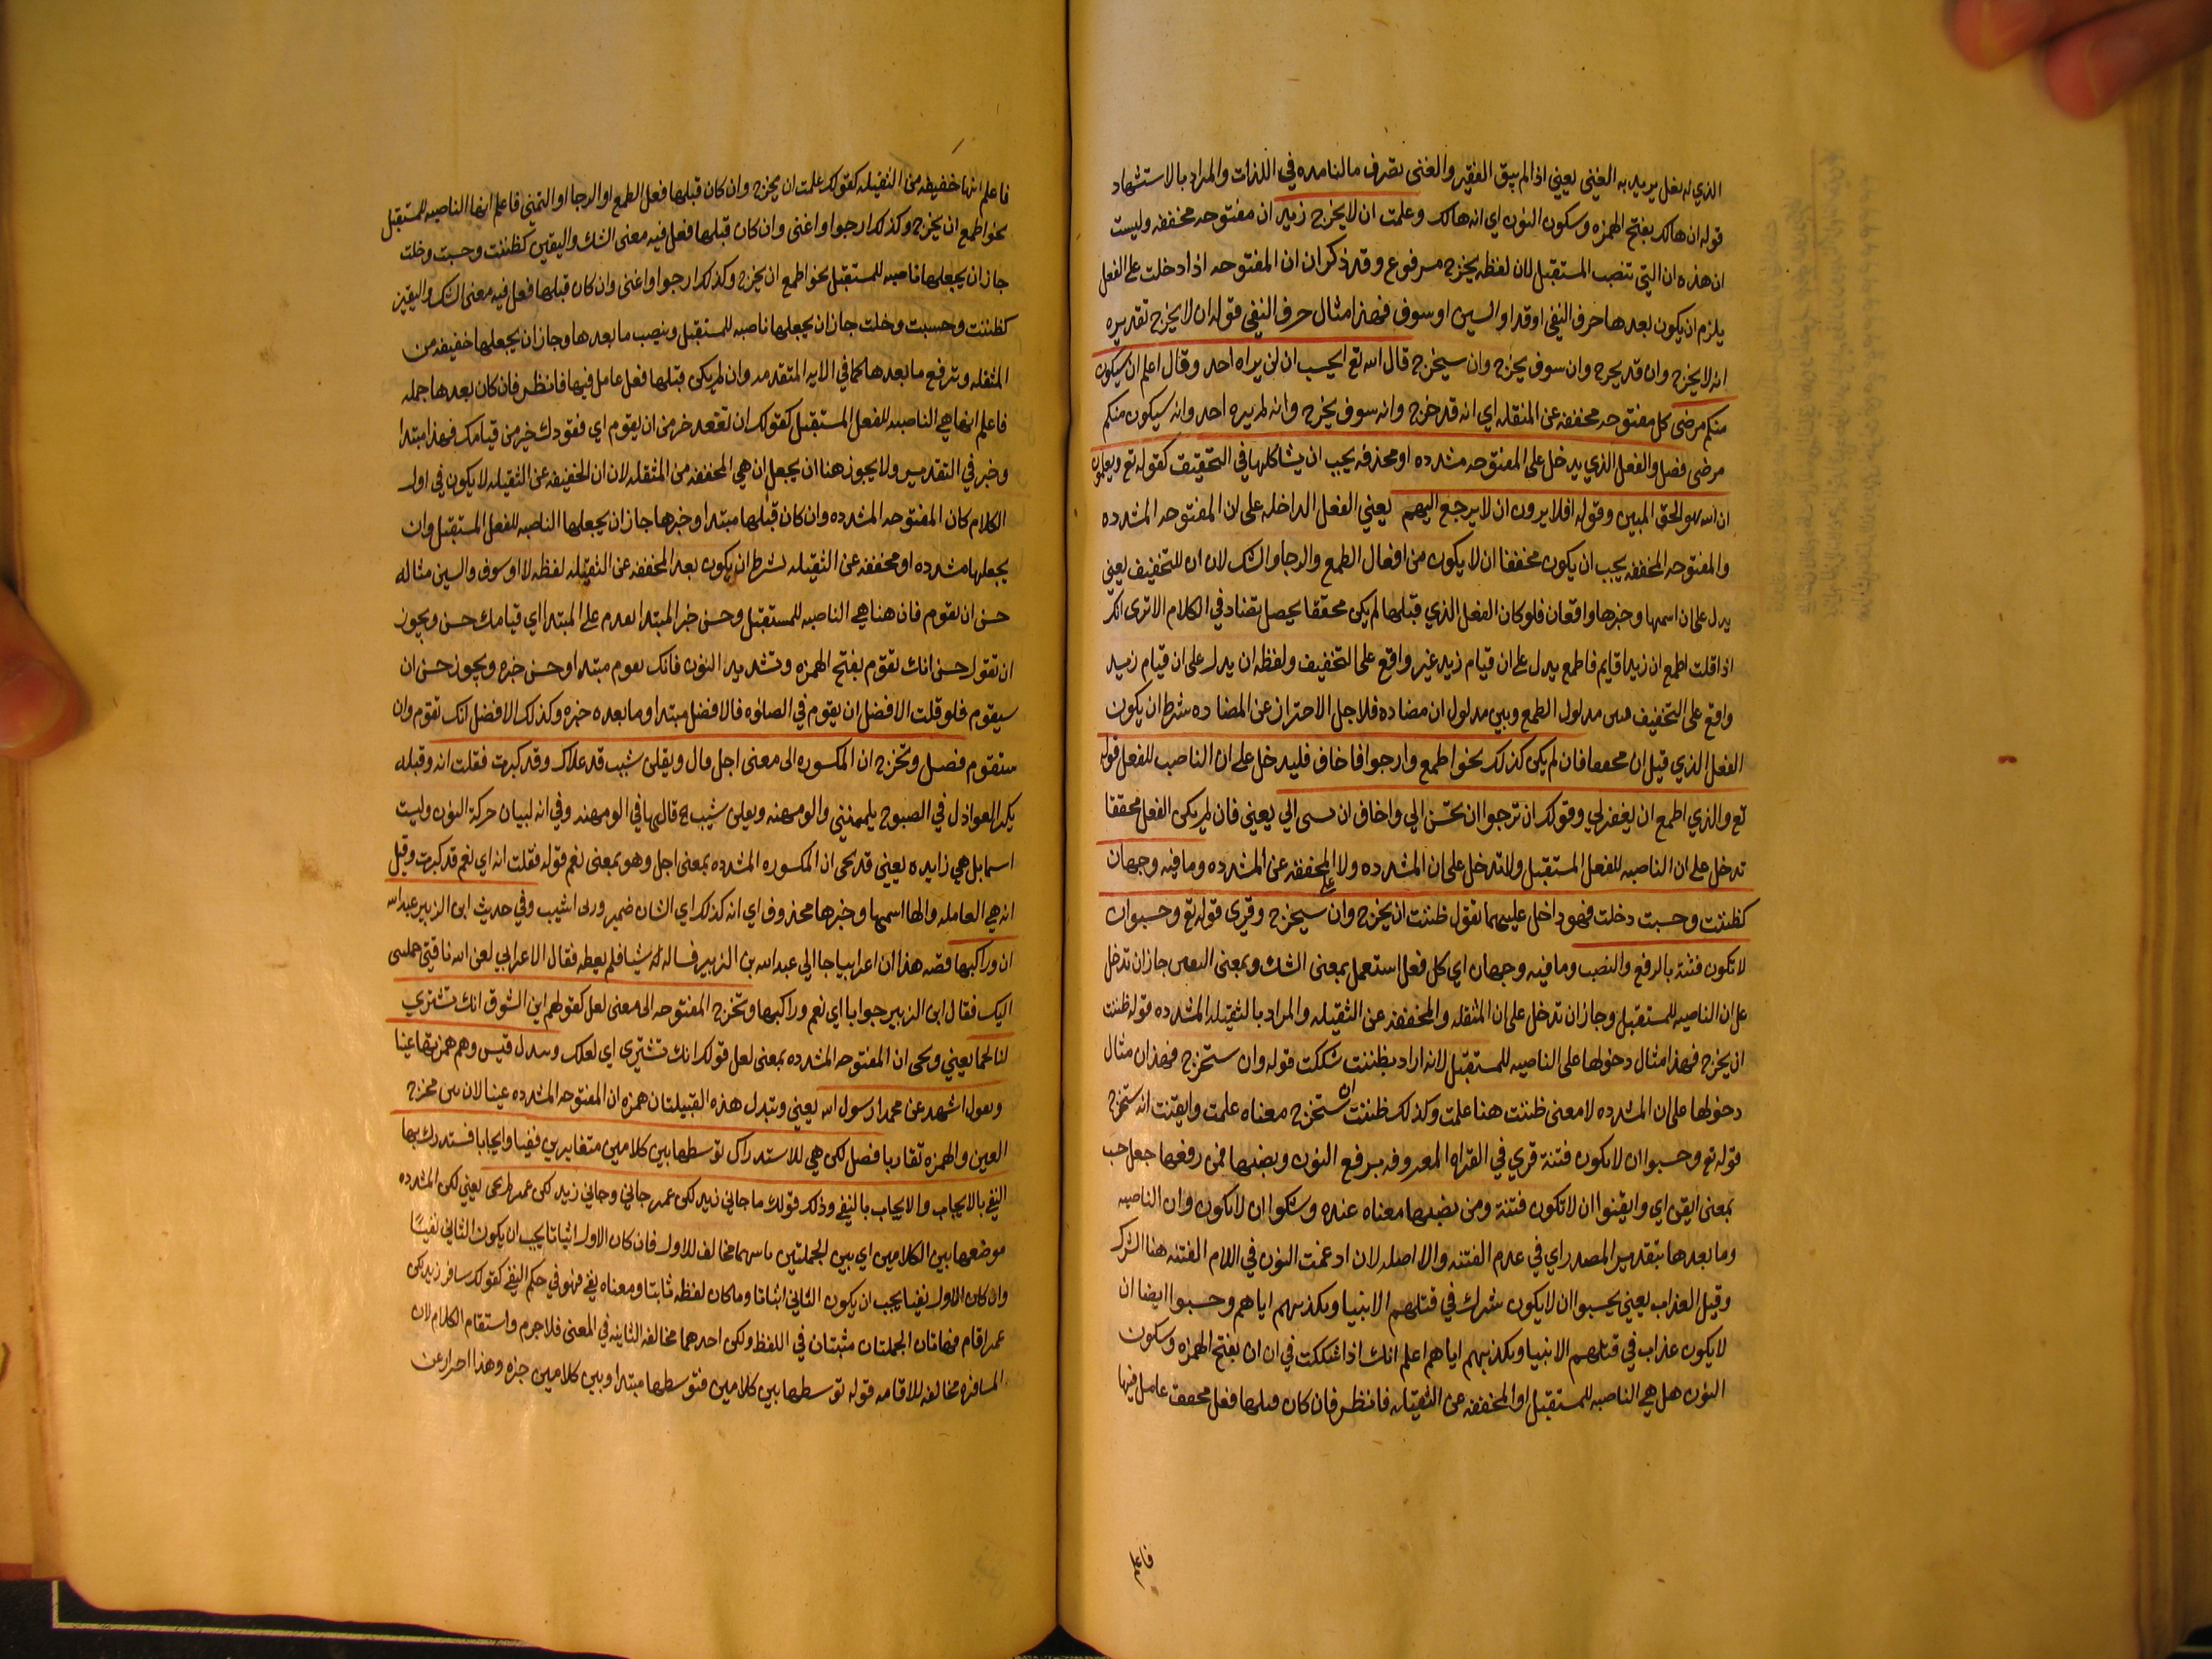 الذي له بغل يريد به الغني يعني اذا لم يبق الفقير والغنى تصرف مالنامده في اللذات والمراد بالاستشهاد
قوله ان هالك بفتح الهمزه وسكون النون اي انه هالك وعلمت ان لا يخرج زيد ان مفتوحه مخففه وليست
ان هذه ان التي تنصب المستقبل لان لفظه يخرج مرفوع وقد ذكر ان ان المفتوحه اذا دخلت على الفعل
يلزم ان يكون بعدها حرف النفي او قد او السين او سوف فهذا مثال حرف النفي قوله ان لا يخرج تقديره
انه لا يخرج وان قد يخرج وان سوف يخرج وان سيخرج قال الله تع ايحسب ان لن يراه احد وقال اعلم ان سيكون
منكم مرضى كل مفتوحه مخففه عن المثقله اي انه قد خرج وانه سوف يخرج وانه لم يره احد وانه سيكون منكم
مرضى فصل والفعل الذي يدخل على المفتوحه مشدده او مخففه يجب ان يشاكلها في التحقيق كقوله تع ويعلمون
ان الله هو الحق المبين وقوله افلا يرون ان لا يرجع اليهم يعني الفعل الداخله على ان المفتوحه المشدده
والمفتوحه المخففه يجب ان يكون محققا ان لا يكون من افعال الطمع والرجا والشك لان ان للتخفيف يعني
يدل على ان اسمها وخبرها واقعان فلو كان الفعل الذي قبلها لم يكن محققا يحصل تضاد في الكلام الا ترى انك
اذا قلت اطمع ان زيدا قايم فاطمع يدل على ان قيام زيد غير واقع على التخفيف ولفظه ان يدل على ان قيام زيد
واقع على التخفيف فبين مدلول الطمع وبين مدلول ان مضاده فلاجل الاحتراز عن المضاده شرط ان يكون
الفعل الذي قبل ان محققا فان لم يكن كذلك نحو اطمع وارجوا فاخاف فليدخل على ان الناصب للفعل قوله
تع والذي اطمع ان يغفر لي وقولك ان ترجوا ان تحسن الي واخاف ان تسي الي يعني فان لم يكن الفعل محققا
تدخل على ان الناصبه للفعل المستقبل ولا تدخل على ان المشدده ولا المخففه عن المشدده وما فيه وجهان
كظننت وحسبت وخلت فهو داخل عليهما تقول ظننت ان يخرج وان سيخرج وقري قوله تع وحسبوا ان
لا تكون فتنة بالرفع والنصب وما فيه وجهان اي كل فعل استعمل بمعنى الشك وبمعنى اليقين جاز ان تدخل
على ان الناصبه للمستقبل وجاز ان تدخل على ان المثقله والمخففه عن الثقيله والمراد بالثقيله المشدده قوله ظننت
ان يخرج فهذا مثال دخولها على الناصبه للمستقبل لانه اراد بظننت شككت قوله وان ستخرج فهذان مثال
دخولها على ان المشدده لا معنى ظننت هنا علمت وكذلك ظننت ان ستخرج معناه علمت وايقنت انه ستخرج
قوله تع وحسبوا ان لا يكون فتنة قري في القراه المعروفه برفع النون وبنصبها فمن رفعها جعل حسب
بمعنى ايقن اي وايقنوا ان لا تكون فتنة ومن نصبها معناه عنده وشكوا ان لا يكون وان الناصبه
وما بعدها بتقدير المصدر اي في عدم الفتنه والا اصله لان ادغمت النون في اللام الفتنه هنا الشرك
وقيل العذاب يعني يحسبوا ان لا يكون شرك في قتلهم الانبيا وبكذبهم اياهم وحسبوا ايضا ان
لا يكون عذاب في قتلهم الانبيا وبكذبهم اياهم اعلم انك اذا شككت في ان ان بفتح الهمزه وسكون
النون هل هي الناصبه للمستقبل او المخففه عن الثقيله فانظر فان كان قبلها فعل محقق عامل فيها
فاعلم
فاعلم انها خفيفه من الثقيله كقولك علمت ان يخرج وان كان قبلها فعل الطمع او الرجا او التمنى فاعلم انها الناصبه للمستقبل
نحو اطمع ان يخرج وكذلك ارجوا واغنى وان كان قبلها فعل فيه معنى الشك واليقين كظننت وحسبت وخلت
جاز ان يجعلها ناصبه للمستقبل نحو اطمع ان يخرج وكذلك ارجوا واغنى وان كان قبلها فعل فيه معنى الشك واليقين
كظننت وحسبت وخلت جاز ان يجعلها ناصبه للمستقبل وينصب ما بعدها وجاز ان يجعلها خفيفه من
المثقله وترفع ما بعدها كما في الايه المتقدمه وان لم يكن قبلها فعل عامل فيها فانظر فان كان بعدها جمله
فاعلم انها هي الناصبه للفعل المستقبل كقولك ان تقعد خير من ان يقوم اي فقعودك خير من قيامك فهذا مبتدا
وخبر في التقدير ولا يجوز هنا ان يجعل ان هي المخففه من المثقله لان ان الخفيفه عن الثقيله لا يكون في اول
الكلام كان المفتوحه المشدده وان كان قبلها مبتدا وخبرها جاز ان يجعلها الناصبه للفعل المستقبل وان
يجعلها مشدده او مخففه عن الثقيله بشرط ان يكون بعد المخففه عن الثقيله لفظه لا او سوف والسين مثاله
حسن ان يقوم فان هنا هي الناصبه للمستقبل وحسن خبر المبتدا تقدم على المبتدا اي قيامك حسن ويجوز
ان تقول حسن انك تقوم بفتح الهمزه وتشديد النون فانك تقوم مبتدا وحسن خبره ويجوز حسن ان
سيقوم فلو قلت الافضل ان يقوم في الصلوه فالافضل مبتدا وما بعده خبره وكذلك الافضل انك تقوم وان
ستقوم فصل وتخرج ان المكسوره الى معنى اجل قال ويقلن شيب قد علاك وقد كبرت فقلت انه وقبله
بكر العواذل في الصبوح يلمنني والومهنه ويقلن شيب قال لها في الومهنه وفي انه لبيان حركة النون وليست
اسما بل هي زايده يعني قد يجي ان المكسوره المشدده بمعنى اجل وهو بمعنى نعم قوله فقلت انه اي نعم قد كبرت وقيل
انه هي العامله والها اسمها وخبرها محذوف اي انه كذلك اي الشان ضمير وردى اشيب وفي حديث ابن الزبير عبد الله
ان وراكبها قصه هذا ان اعرابيا جا الى عبد الله بن الزبير فساله له شيا فلم يعطه فقال الاعرابي لعن الله ناقتي حملتني
اليك فقال ابن الزبير جوابا اي نعم وراكبها وتخرج المفتوحه الى معنى لعل كقولهم اين الشوق انك تشتري
لنا لحما يعني ويجي ان المفتوحه المشدده بمعنى لعل قولك انك تشتري اي لعلك وتبدل قيس وهم همزتها عينا
وتقول اشهد عن محمدا رسول الله يعني وتبدل هذه القبيلتان همزه ان المفتوحه المشدده عينا لان بين مخرج
العين والهمزه تقاربا فصل لكن هي للاستدراك توسطها بين كلامين متغايرين نفيا وايجابا فتستدرك بها
النفي بالايجاب والايجاب بالنفي وذلك قولك ما جاني زيد لكن عمرا جاني وجاني زيد لكن عمرا لم يجي يعني لكن المشدده
موضعها بين الكلامين اي بين الجملتين مخالف للاول فان كان الاول اثباتا يجب ان يكون الثاني نفيا
وان كان الاول نفيا يجب ان يكون الثاني اثباتا وما كان لفظه ثابتا ومعناه نفي فهو في حكم النفي كقولك سافر زيد لكن
عمرا قام فهاتان الجملتان مثبتان في اللفظ ولكن احدهما مخالفه الثانيه في المعنى فلا جرم واستقام الكلام لان
المسافره مخالفه للاقامه قوله توسطها بين كلامين فتوسطها مبتدا وبين كلامين خبره وهذا احتراز عن